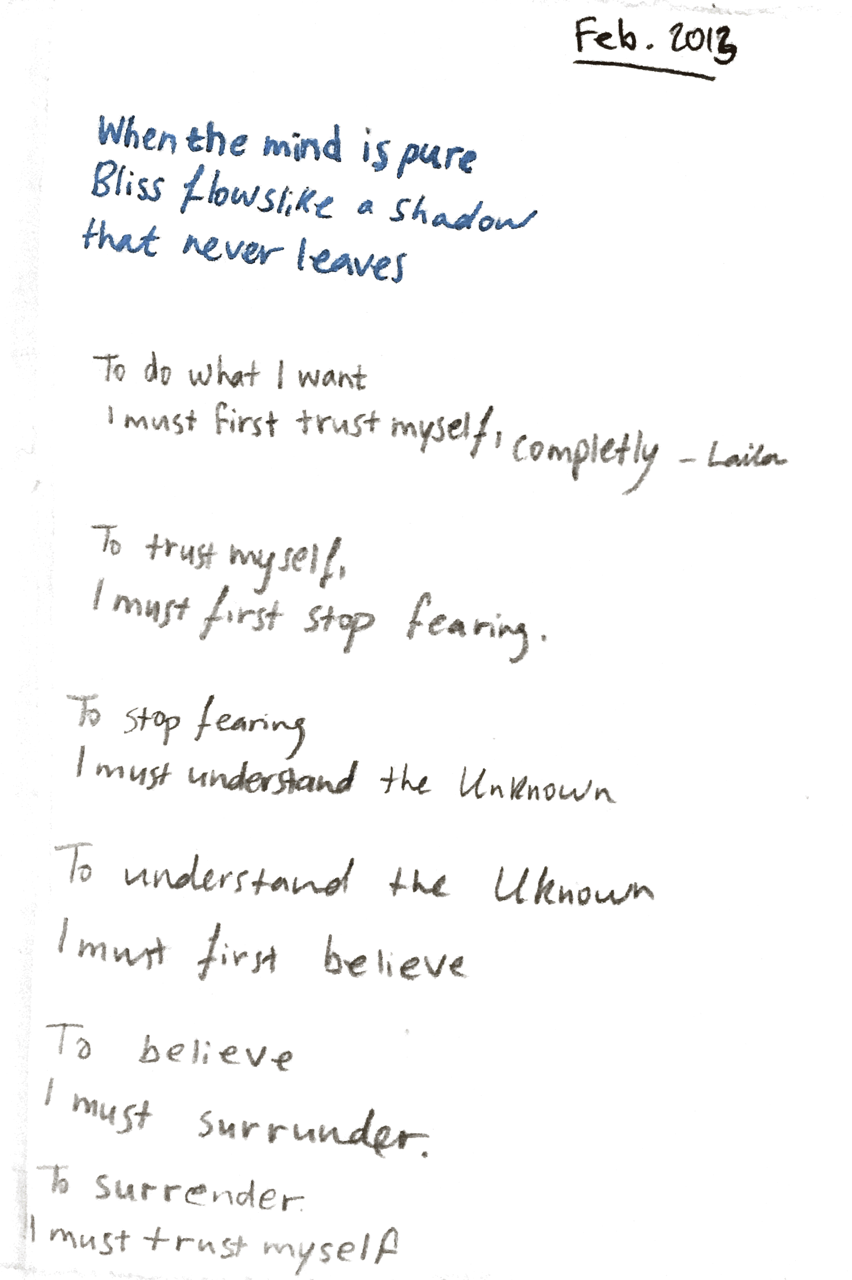 Feb. 2013
When the mind is pure
Bliss flows like a shadow
that never leaves
To do what I want
I must first trust myself, completly - Laila
To trust myself,
I must first stop fearing.
To stop fearing
I must understand the Unknown
To understand the Uknown
I must first believe
To believe
I must surrunder.
To surrender
I must trust myself